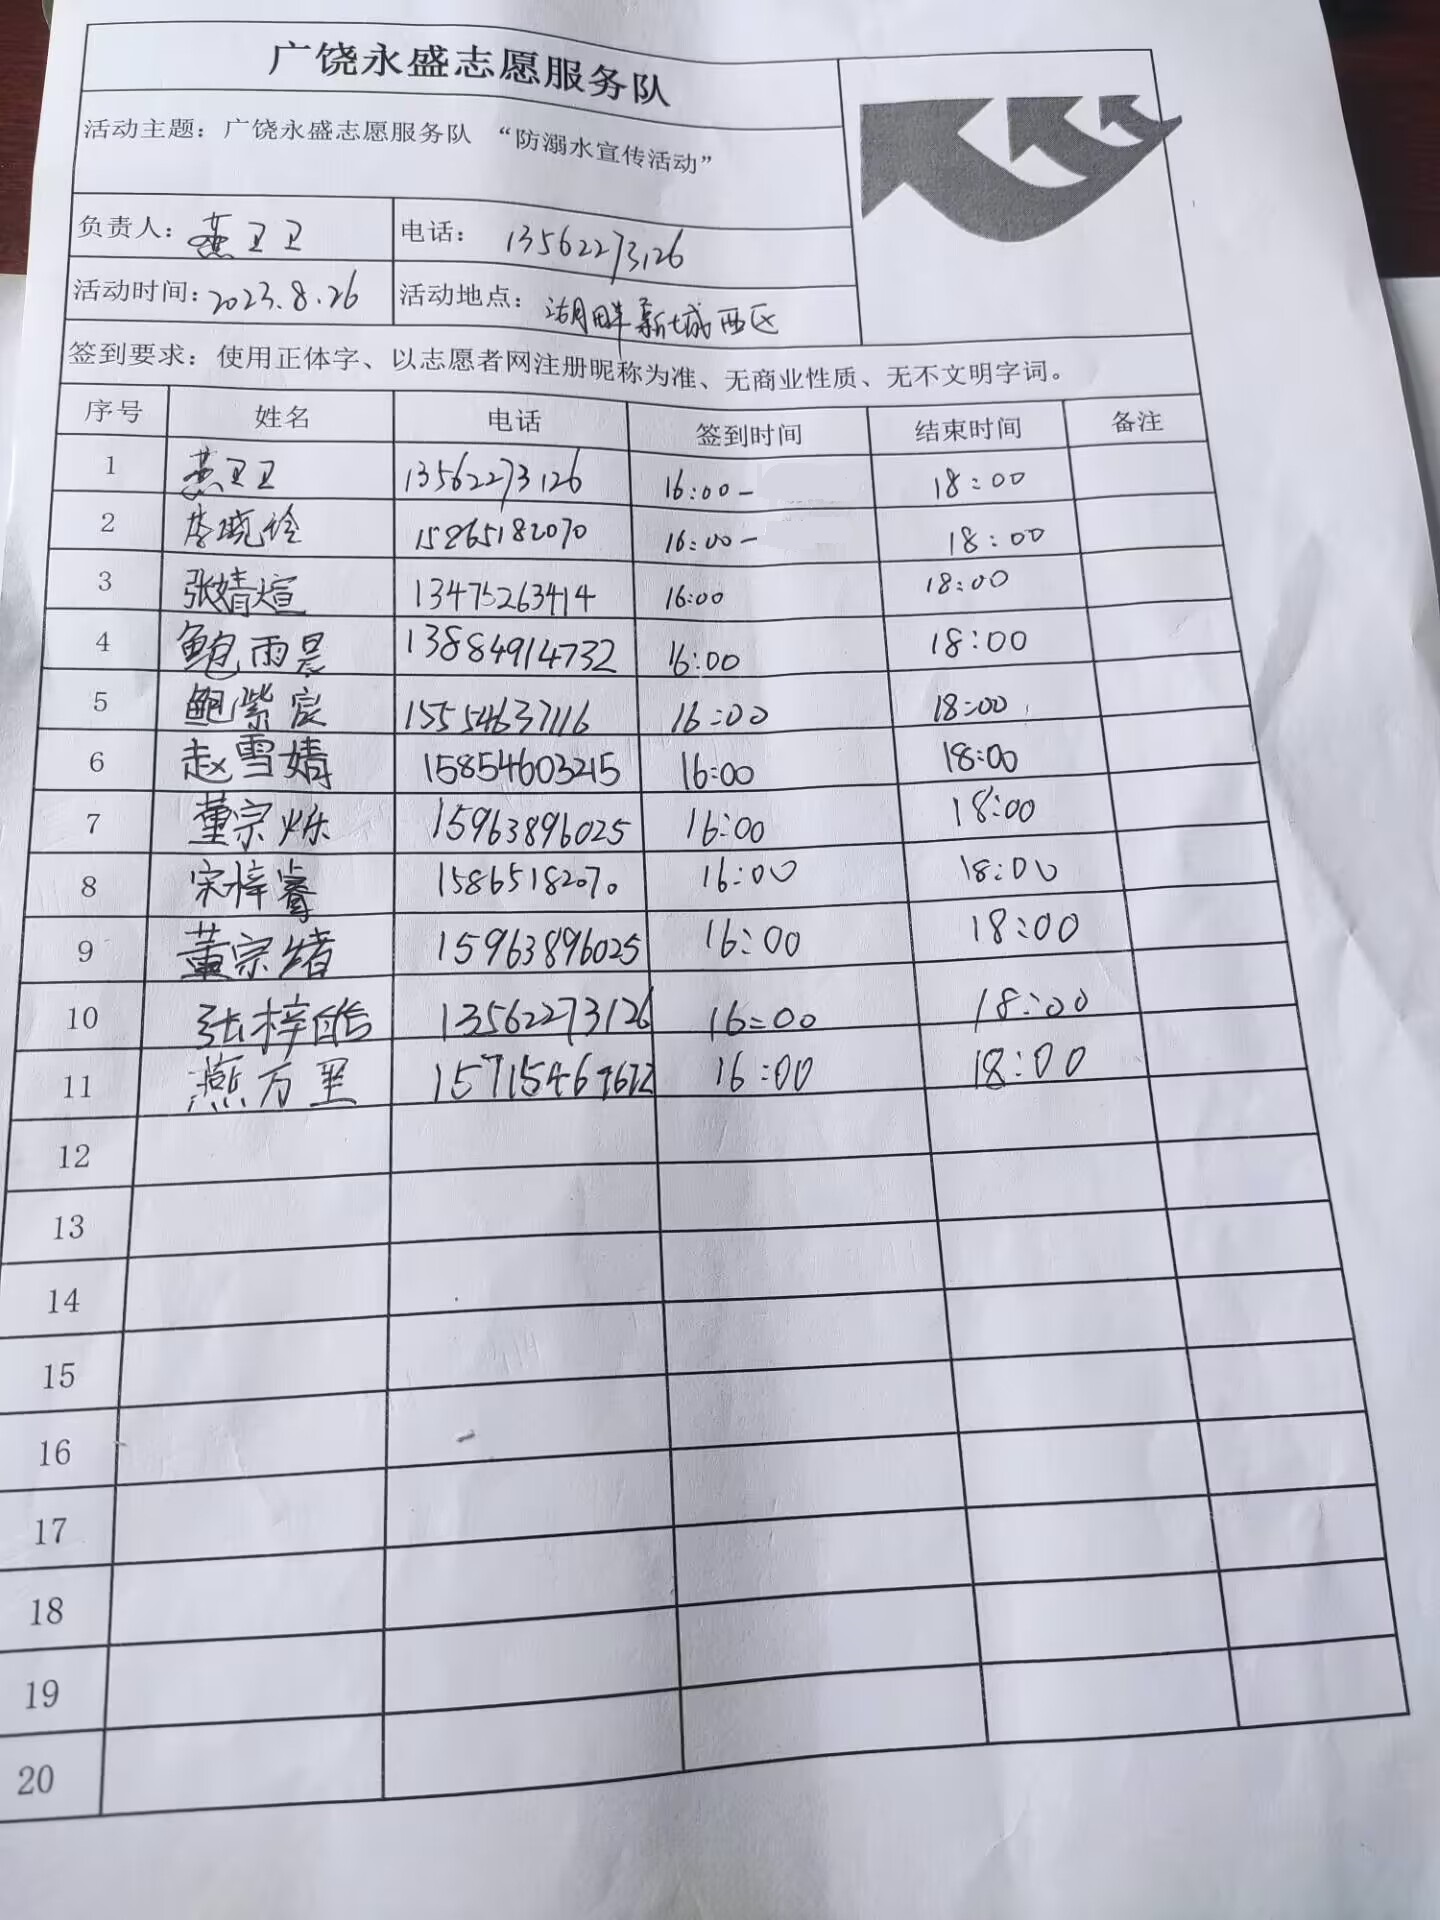 广饶永盛志愿服务队
活动主题：广饶永盛志愿服务队 “防溺水宣传活动”
负责人：燕卫卫 电话：13562273126
活动时间：2023.8.26 活动地点：湖畔新城西区
签到要求：使用正体字、以志愿者网注册昵称为准、无商业性质、无不文明字词。
序号 姓名 电话 签到时间 结束时间 备注
1 燕卫卫 13562273126 16:00- 18:00
2 李晓玲 15865182070 16:00- 18:00
3 张婧煊 13475263414 16:00 18:00
4 鲍雨晨 13884914732 16:00 18:00
5 鲍紫宸 15554637116 16:00 18:00
6 赵雪婧 15854603215 16:00 18:00
7 董宗烁 15963896025 16:00 18:00
8 宋梓睿 15865182070 16:00 18:00
9 董宗绪 15963896025 16:00 18:00
10 张梓皓 13562273126 16:00 18:00
11 燕万里 16:00 18:00
12
13
14
15
16
17
18
19
20